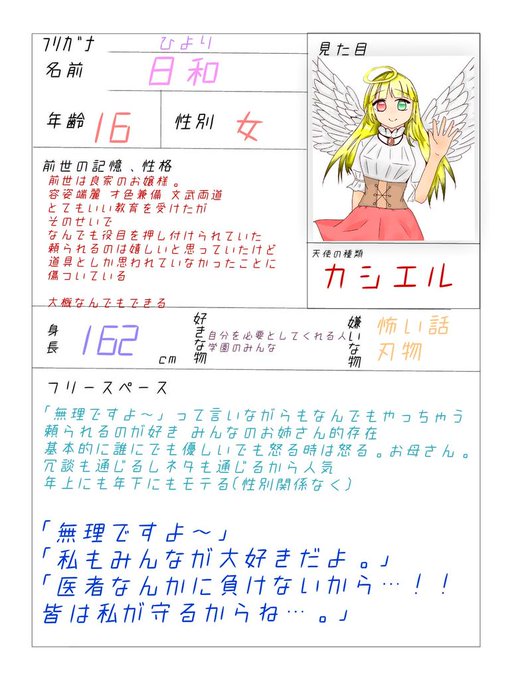 フリガナ ひより
名前 日和
年齢 16 性別 女
見た目
天使の種類
カシエル
前世の記憶、性格
前世は良家のお嬢様。
容姿端麗 才色兼備 文武両道
とてもいい教育を受けたが
そのせいで
なんでも役目を押し付けられていた
頼られるのは嬉しいと思っていたけど
道具としか思われていなかったことに
傷ついている
大概なんでもできる
身長 162 cm
好きな物 自分を必要としてくれる人
学園のみんな
嫌いな物 怖い話
刃物
フリースペース
「無理ですよ〜」って言いながらもなんでもやっちゃう
頼られるのが好き みんなのお姉さん的存在
基本的に誰にでも優しいでも怒る時は怒る。お母さん。
冗談も通じるしネタも通じるから人気
年上にも年下にもモテる(性別関係なく)
「無理ですよ〜」
「私もみんなが大好きだよ。」
「医者なんかに負けないから…!!
皆は私が守るからね…。」